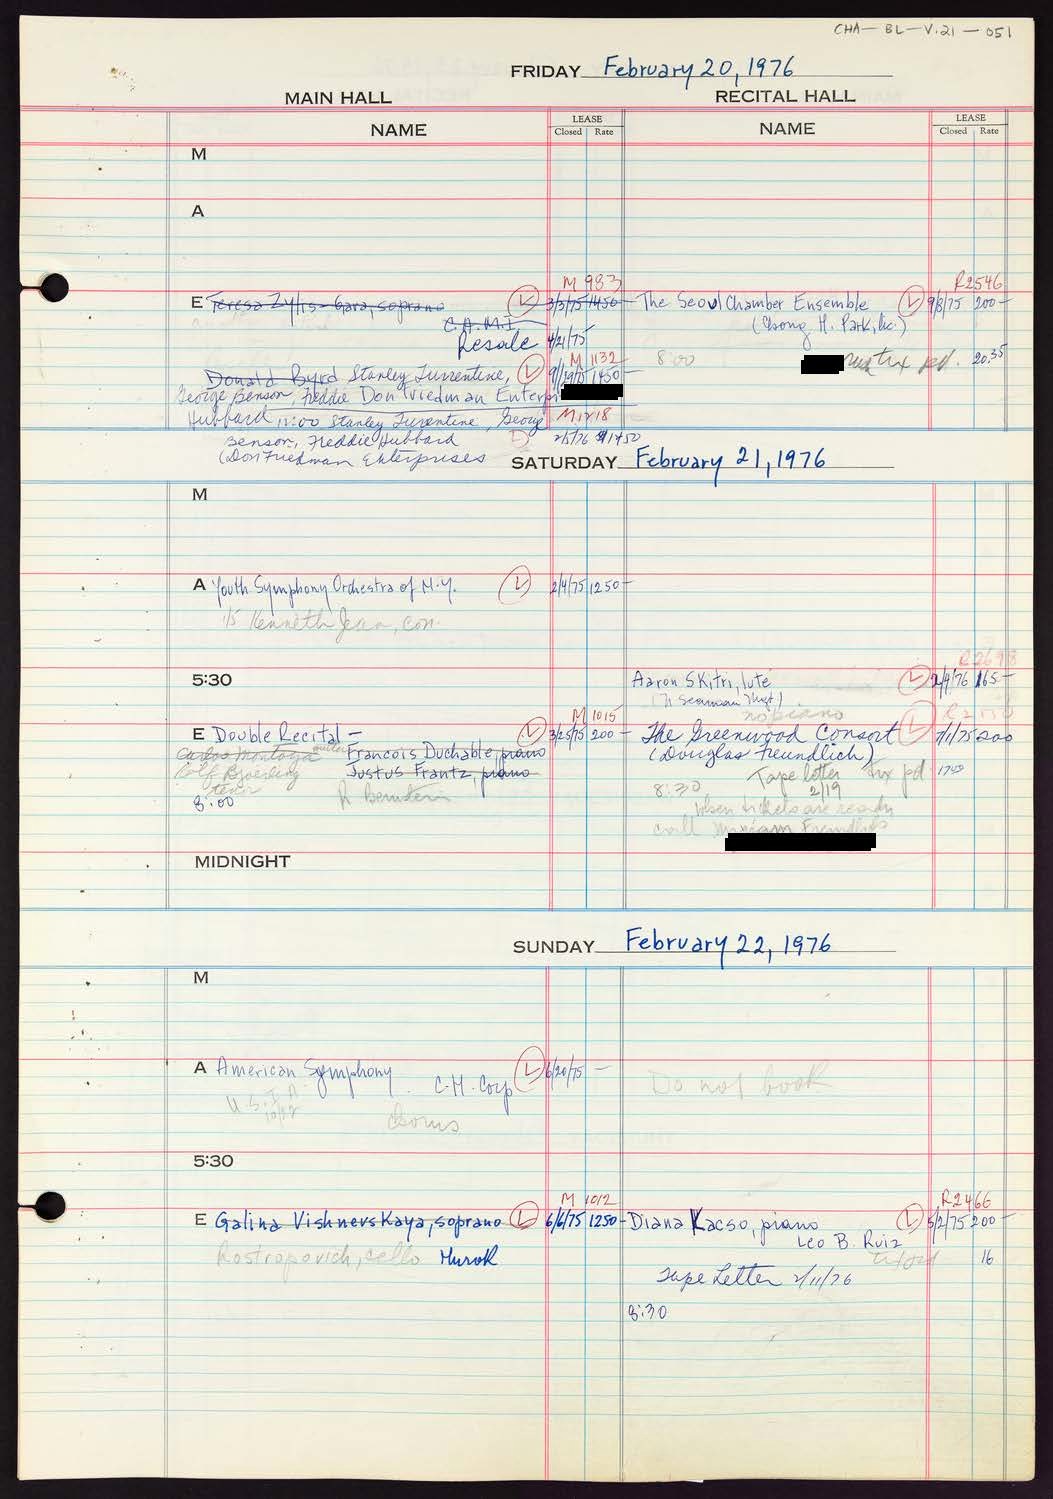 CHA-BL-V.21-051
FRIDAY February 20, 1976
MAIN HALL
RECITAL HALL
NAME
LEASE
Closed Rate
NAME
LEASE
Closed Rate
M
A
M 983
R2546
E Teresa Zylis-Gara, soprano 3/3/75 1450-
The Seoul Chamber Ensemble 9/8/75 200-
C.A.M.I.
(Chong H. Park, Inc.)
Resale 4/21/75
M 1132
8:00 tix pd. 20.35
Donald Byrd Stanley Turrentine, 1450-
George Benson, Freddie Don Friedman Enterpri
Hubbard 11:00 Stanley Turrentine, George M1218
Benson, Freddie Hubbard 2/5/76 $1450
(Don Friedman Enterprises
SATURDAY February 21, 1976
M
A Youth Symphony Orchestra of N.Y. 2/4/75 1250-
Kenneth Jean, con.
R2698
5:30
Aaron Skitri, lute 2/4/76 165-
no piano
M 1015
E Double Recital - 3/25/75 200-
The Greenwood Consort 7/1/75 200
Carlos Montoya guitar Francois Duchable, piano
(Douglas Freundlich)
Justus Frantz, piano
tenor
Tape letter tix pd
2/19
8:00
8:30
When tickets are ready
call Miriam Freundlich
MIDNIGHT
SUNDAY February 22, 1976
M
A American Symphony C.H. Corp 6/20/75 -
Do not book
5:30
M 1012
R2466
E Galina Vishnevskaya, soprano 6/6/75 1250-
Diana Kacso, piano 5/2/75 200-
Leo B. Ruiz
Rostropovich, cello Hurok
16
Tape Letter 2/11/76
8:30